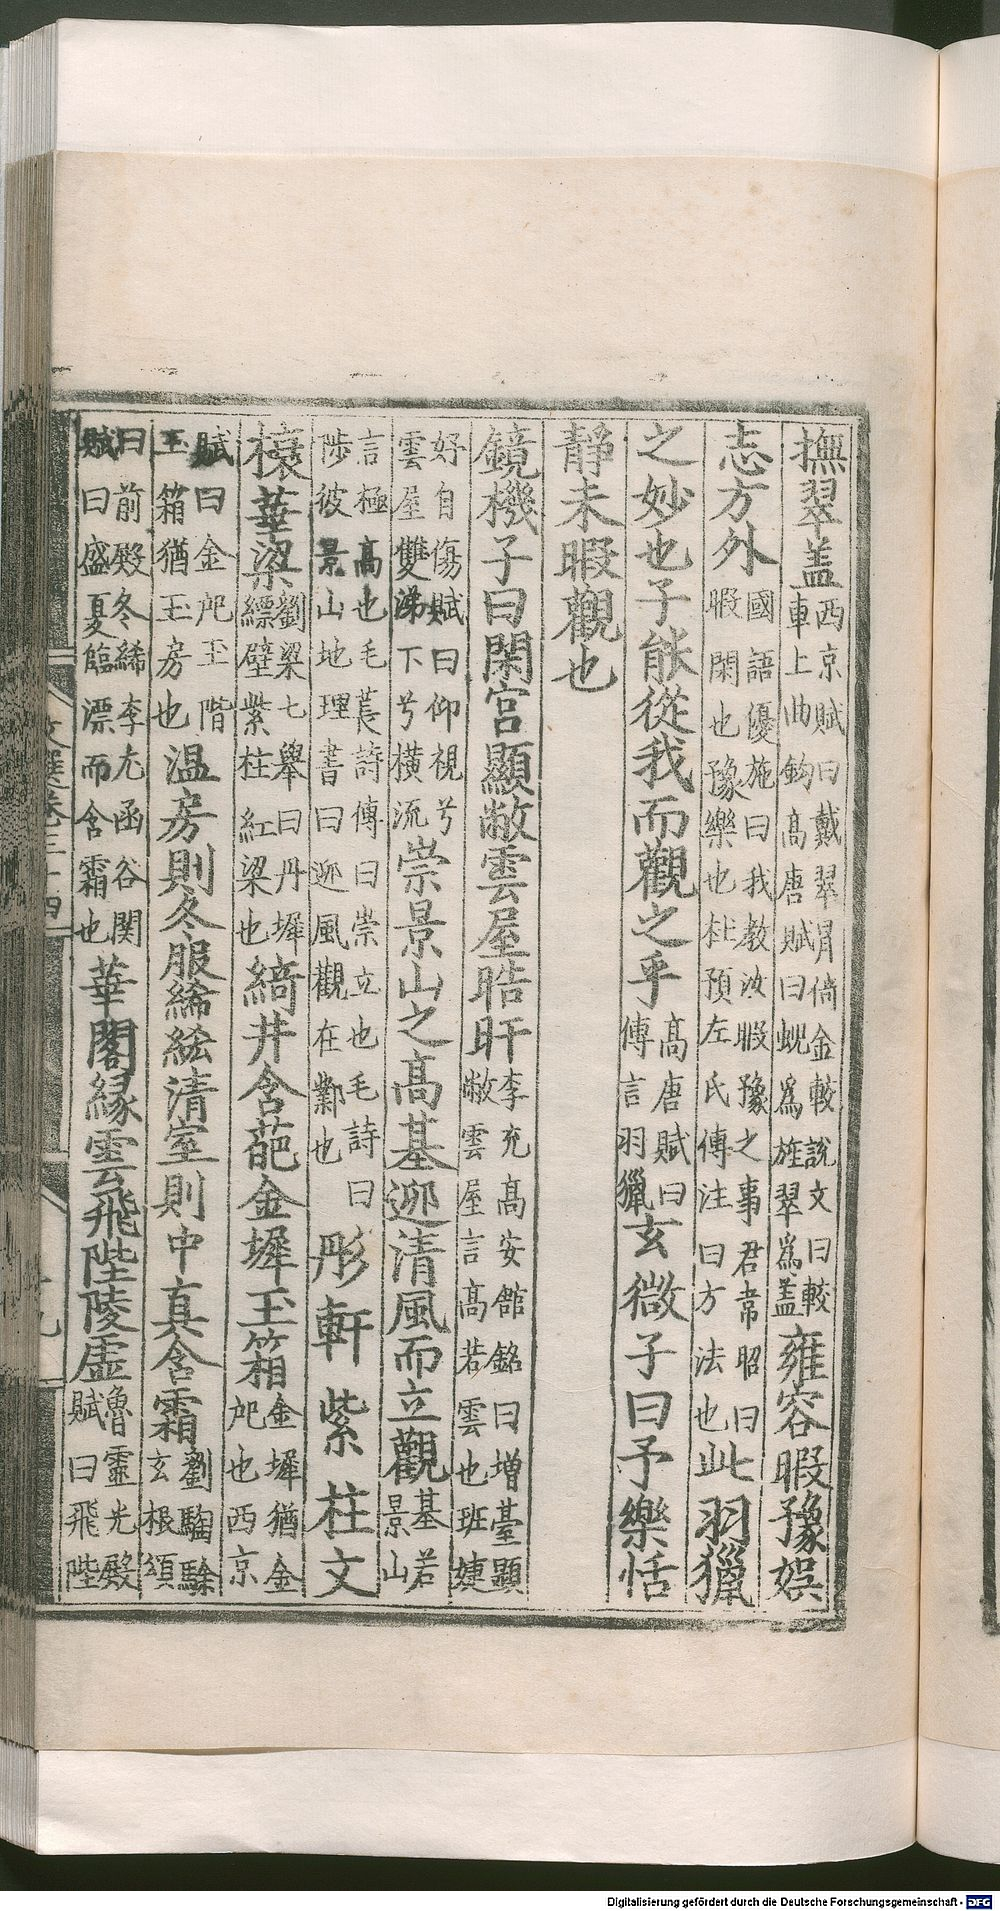 撫翠盖西京賦曰戴翠㡌倚金較說文曰較車上曲鈎高唐賦曰蜺爲旌翠爲盖雍容暇豫娛
志方外國語優施曰我教汝暇豫之事君韋昭曰暇閑也豫樂也杜預左氏傳注曰方法也此羽獵
之妙也子能從我而觀之乎高唐賦曰傳言羽獵玄微子曰予樂恬
靜未暇觀也
鏡機子曰閑宮顯敞雲屋晧旰李充高安館銘曰增臺顯敞雲屋言高若雲也班婕
好自傷賦曰仰視兮雲屋雙涕下兮橫流崇景山之高基迎清風而立觀基若景山
言極高也毛萇詩傳曰崇立也毛詩曰陟彼景山地理書曰迎風觀在鄴也彤軒紫柱文
榱華梁劉梁七舉曰丹墀縹壁紫柱紅梁也綺井含葩金墀玉箱金墀猶金戺也西京
賦曰金戺玉階玉箱猶玉房也温房則冬服絺綌清室則中真含霜劉騊駼玄根頌
曰前殿冬絺李尤函谷関賦曰盛夏臨漂而含霜也華閣緣雲飛陛陵虛魯靈光殿賦曰飛陛
文選卷三十四
Digitalisierung gefördert durch die Deutsche Forschungsgemeinschaft - DFG